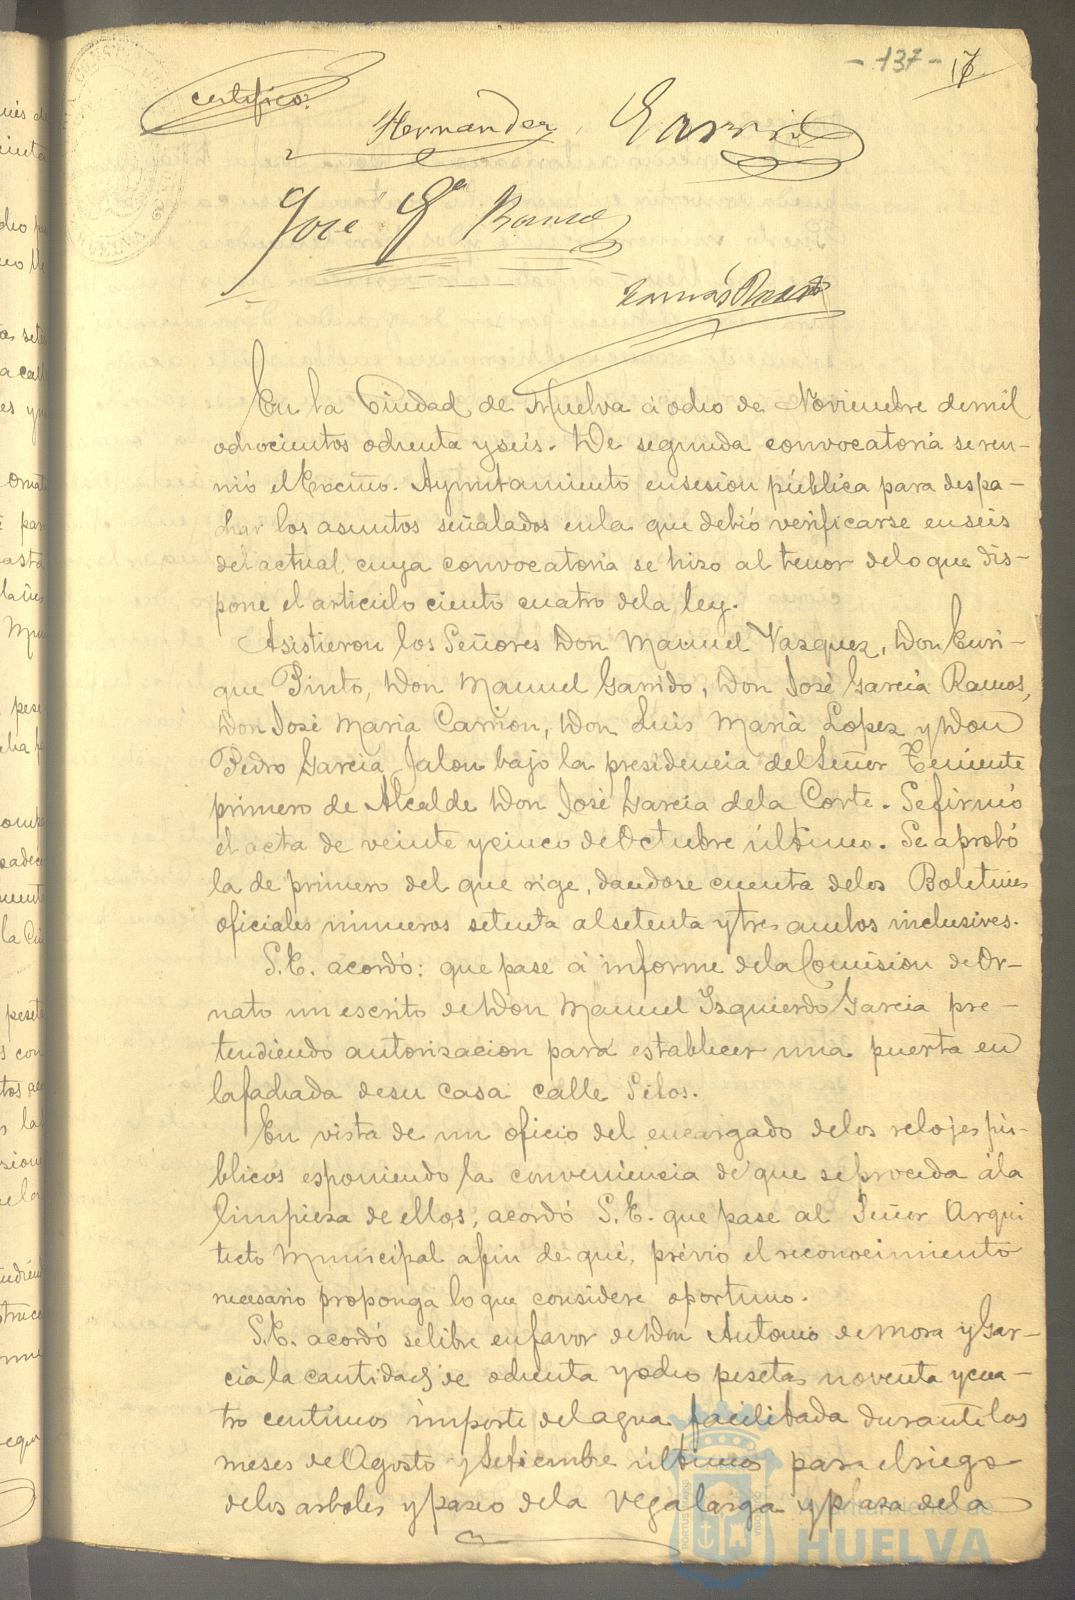 - 137 - 17
certifico:
Hernandez, Garrido
José Ga Ramos
Tomás
En la Ciudad de Huelva á ocho de Noviembre de mil
ochocientos ochenta y seis. De segunda convocatoria se reu-
nió el Excmo. Ayuntamiento en sesion pública para despa-
char los asuntos señalados en la que debió verificarse en seis
del actual cuya convocatoria se hizo al tenor de lo que dis-
pone el articulo ciento cuatro de la ley.
Asistieron los Señores Don Manuel Vazquez, Don Enri-
que Pinto, Don Manuel Garrido, Don José Garcia Ramos,
Don José Maria Carrion, Don Luis Maria Lopez y Don
Pedro Garcia Jalon bajo la presidencia del Señor Teniente
primero de Alcalde Don José Garcia de la Corte. Se firmó
el acta de veinte y cinco de Octubre último. Se aprobó
la de primero del que rige, dandose cuenta de los Boletines
oficiales números setenta al setenta y tres ambos inclusives.
S.E. acordó: que pase á informe de la Comision de Or-
nato un escrito de Don Manuel Izquierdo Garcia pre-
tendiendo autorizacion para establecer una puerta en
la fachada de su casa calle Silos.
En vista de un oficio del encargado de los relojes pú-
blicos esponiendo la conveniencia de que se proceda á la
limpieza de ellos, acordó S.E. que pase al Señor Arqui
tecto Municipal afin de que, prévio el reconocimiento
necesario proponga lo que considere oportuno.
S.E. acordó se libre en favor de Don Antonio de Mora y Gar-
cia la cantidad de ochenta y ocho pesetas noventa y cua-
tro centimos importe del agua facilitada durante los
meses de Agosto y Setiembre últimos para el riego
de los arboles y paseo de la Vega larga y plaza de la
Ayuntamiento de
HUELVA